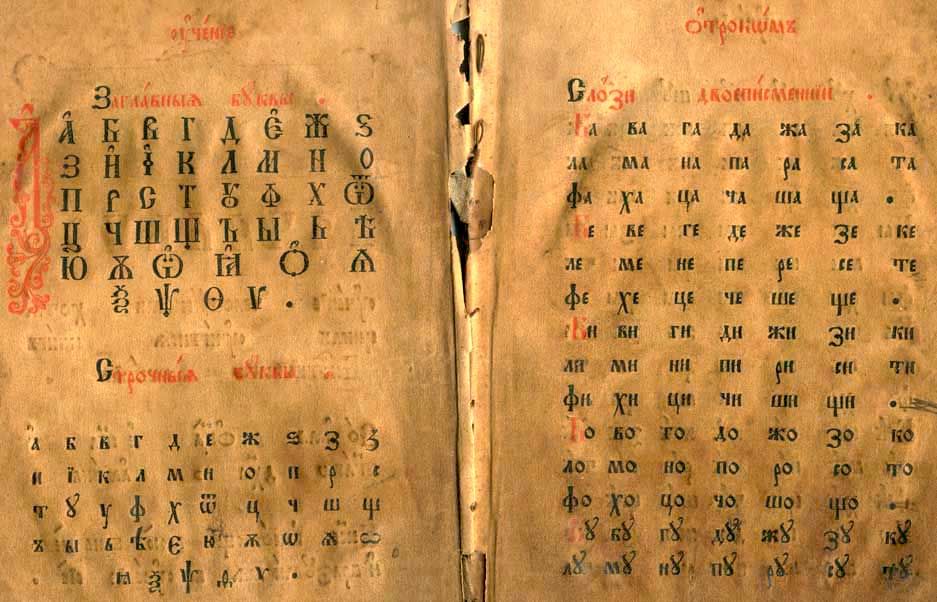 Ѹче́нїе
Загла́вныѧ бꙋ́квы .
А҆ Б В Г Д Є҆ Ж Ѕ
З И҆ І҆ К Л М Н О
П Р С Т Ꙋ Ф Х Ѿ
Ц Ч Ш Щ Ъ Ы Ь Ѣ
Ю҆ Ѫ Ѽ Ꙗ҆ Ѻ҆ Ѧ
Ѯ Ѱ Ѳ Ѵ .
Стро́чныѧ бꙋ́квы
а б в г д е ж ѕ з
и ї к л м н п р с
т ꙋ у ф х ѿ ц ч ш щ
ъ ы ь ѣ є ю ѫ ѡ ѧ
ѯ ѱ ѵ .
Ѻ҆трокѡ́мъ
Сло́зи двоепи́сменнїи .
Ба ва га да жа за ка
ла ма на па ра са та
фа ха ца ча ша ща .
Бе ве ге де же зе ке
ле ме не пе ре се те
фе хе це че ше ще .
Би ви ги ди жи зи ки
ли ми ни пи ри си ти
фи хи ци чи ши щи .
Бо во го до жо зо ко
ло мо но по ро со то
фо хо цо чо шо що .
Бꙋ вꙋ гꙋ дꙋ жꙋ зꙋ кꙋ
лꙋ мꙋ нꙋ пꙋ рꙋ сꙋ тꙋ